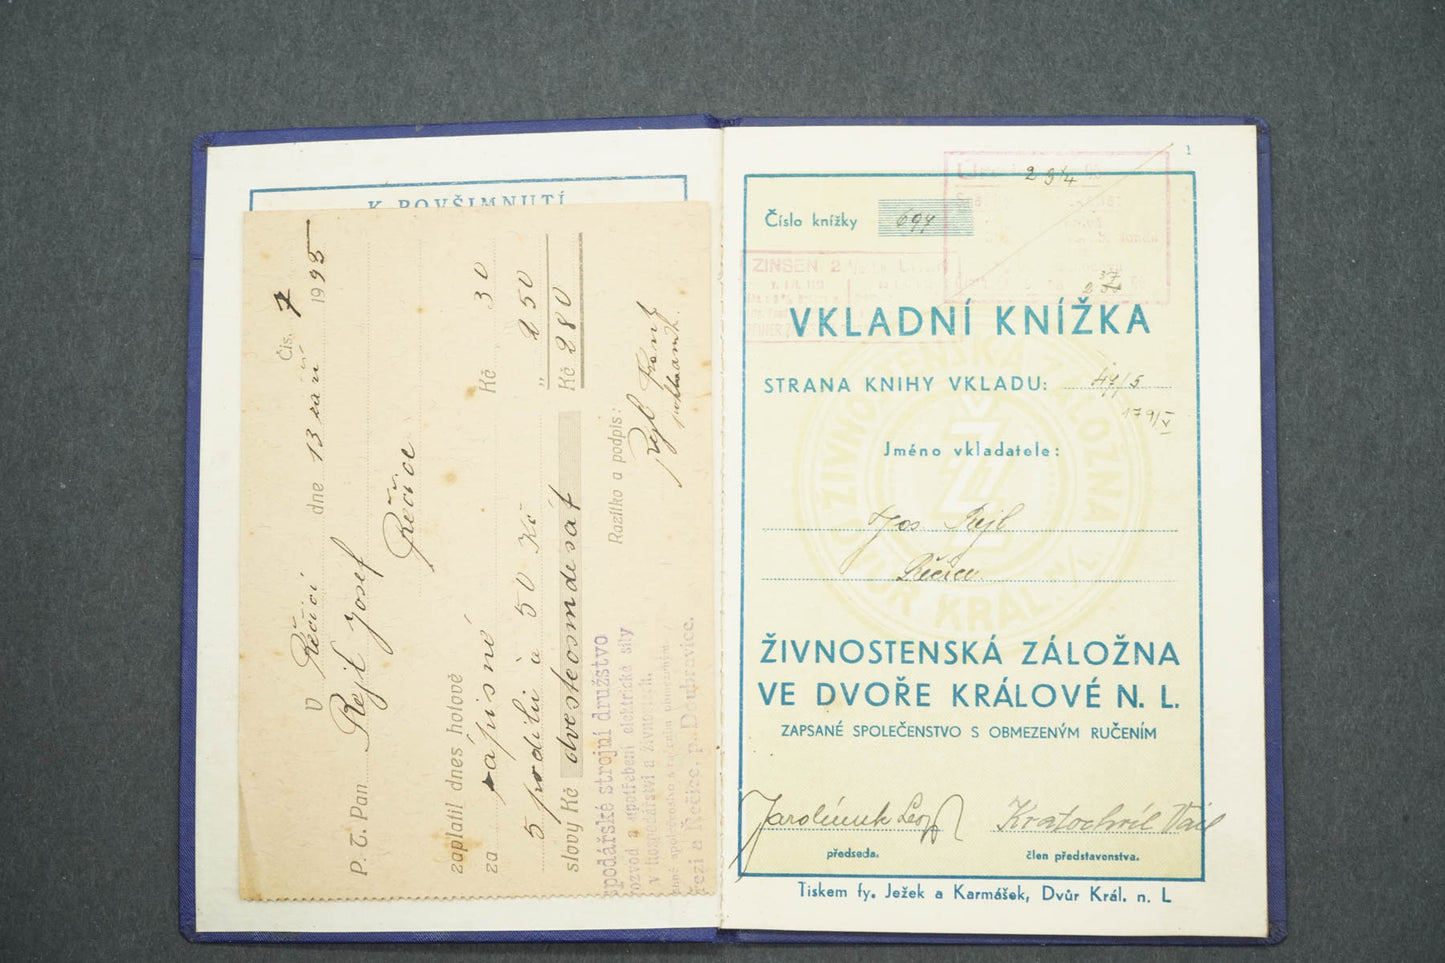 K POVŠIMNUTÍ
Čís. 7
V Řečici dne 13 září 1935
P. T. Pan Rejl Josef
Řečice
zaplatil dnes hotově
za zápisné Kč 30
5 podílů à 50 Kč „ 250
slovy Kč dvesteosmdesát Kč 280
Razítko a podpis:
Rejl
pokladník
spodářské strojní družstvo
rozvod a upotřebení elektrické síly
v hospodářství a živnostech,
Řečice, p. Doubravice.
1
2 3/4 %
Číslo knížky 697
ZINSEN 2
VKLADNÍ KNÍŽKA
STRANA KNIHY VKLADU: 47/5
179/V
Jméno vkladatele:
Jos. Rejl
Řečice
ŽIVNOSTENSKÁ ZÁLOŽNA
VE DVOŘE KRÁLOVÉ N. L.
ZAPSANÉ SPOLEČENSTVO S OBMEZENÝM RUČENÍM
Jarolímek Kratochvíl
předseda. člen představenstva.
Tiskem fy. Ježek a Karmášek, Dvůr Král. n. L
ŽIVNOSTENSKÁ ZÁLOŽNA DVŮR KRÁL. N/L